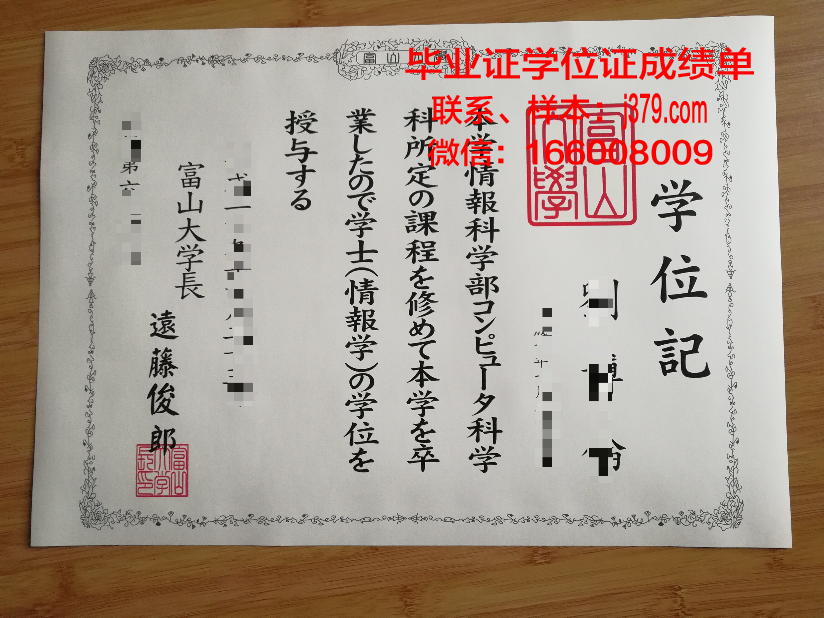 毕业证学位证成绩单
联系、样本:j379.com
微信:166008009
富山大學
学位記
本学情報科学部コンピュータ科学
科所定の課程を修めて本学を卒
業したので学士(情報学)の学位を
授与する
富山大学長
遠藤俊郎
第六